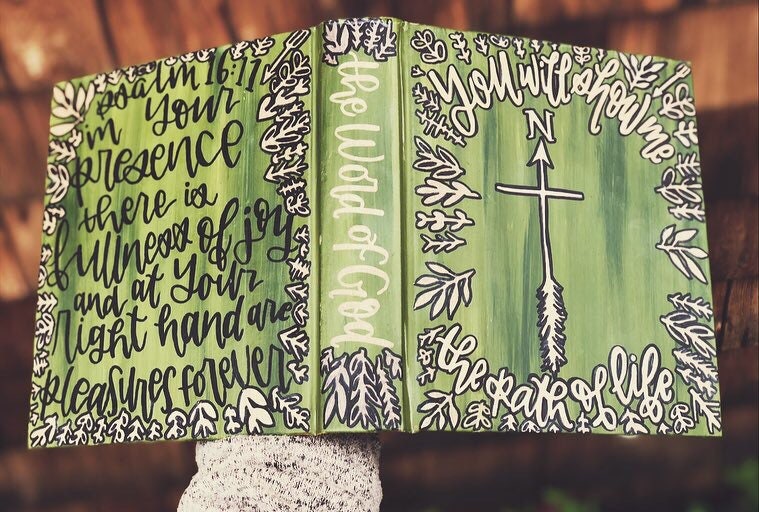 psalm 16:11
in your
presence
there is
fullness of joy
and at your
right hand are
pleasures forever
the Word of God
You will show me
N
the path of life